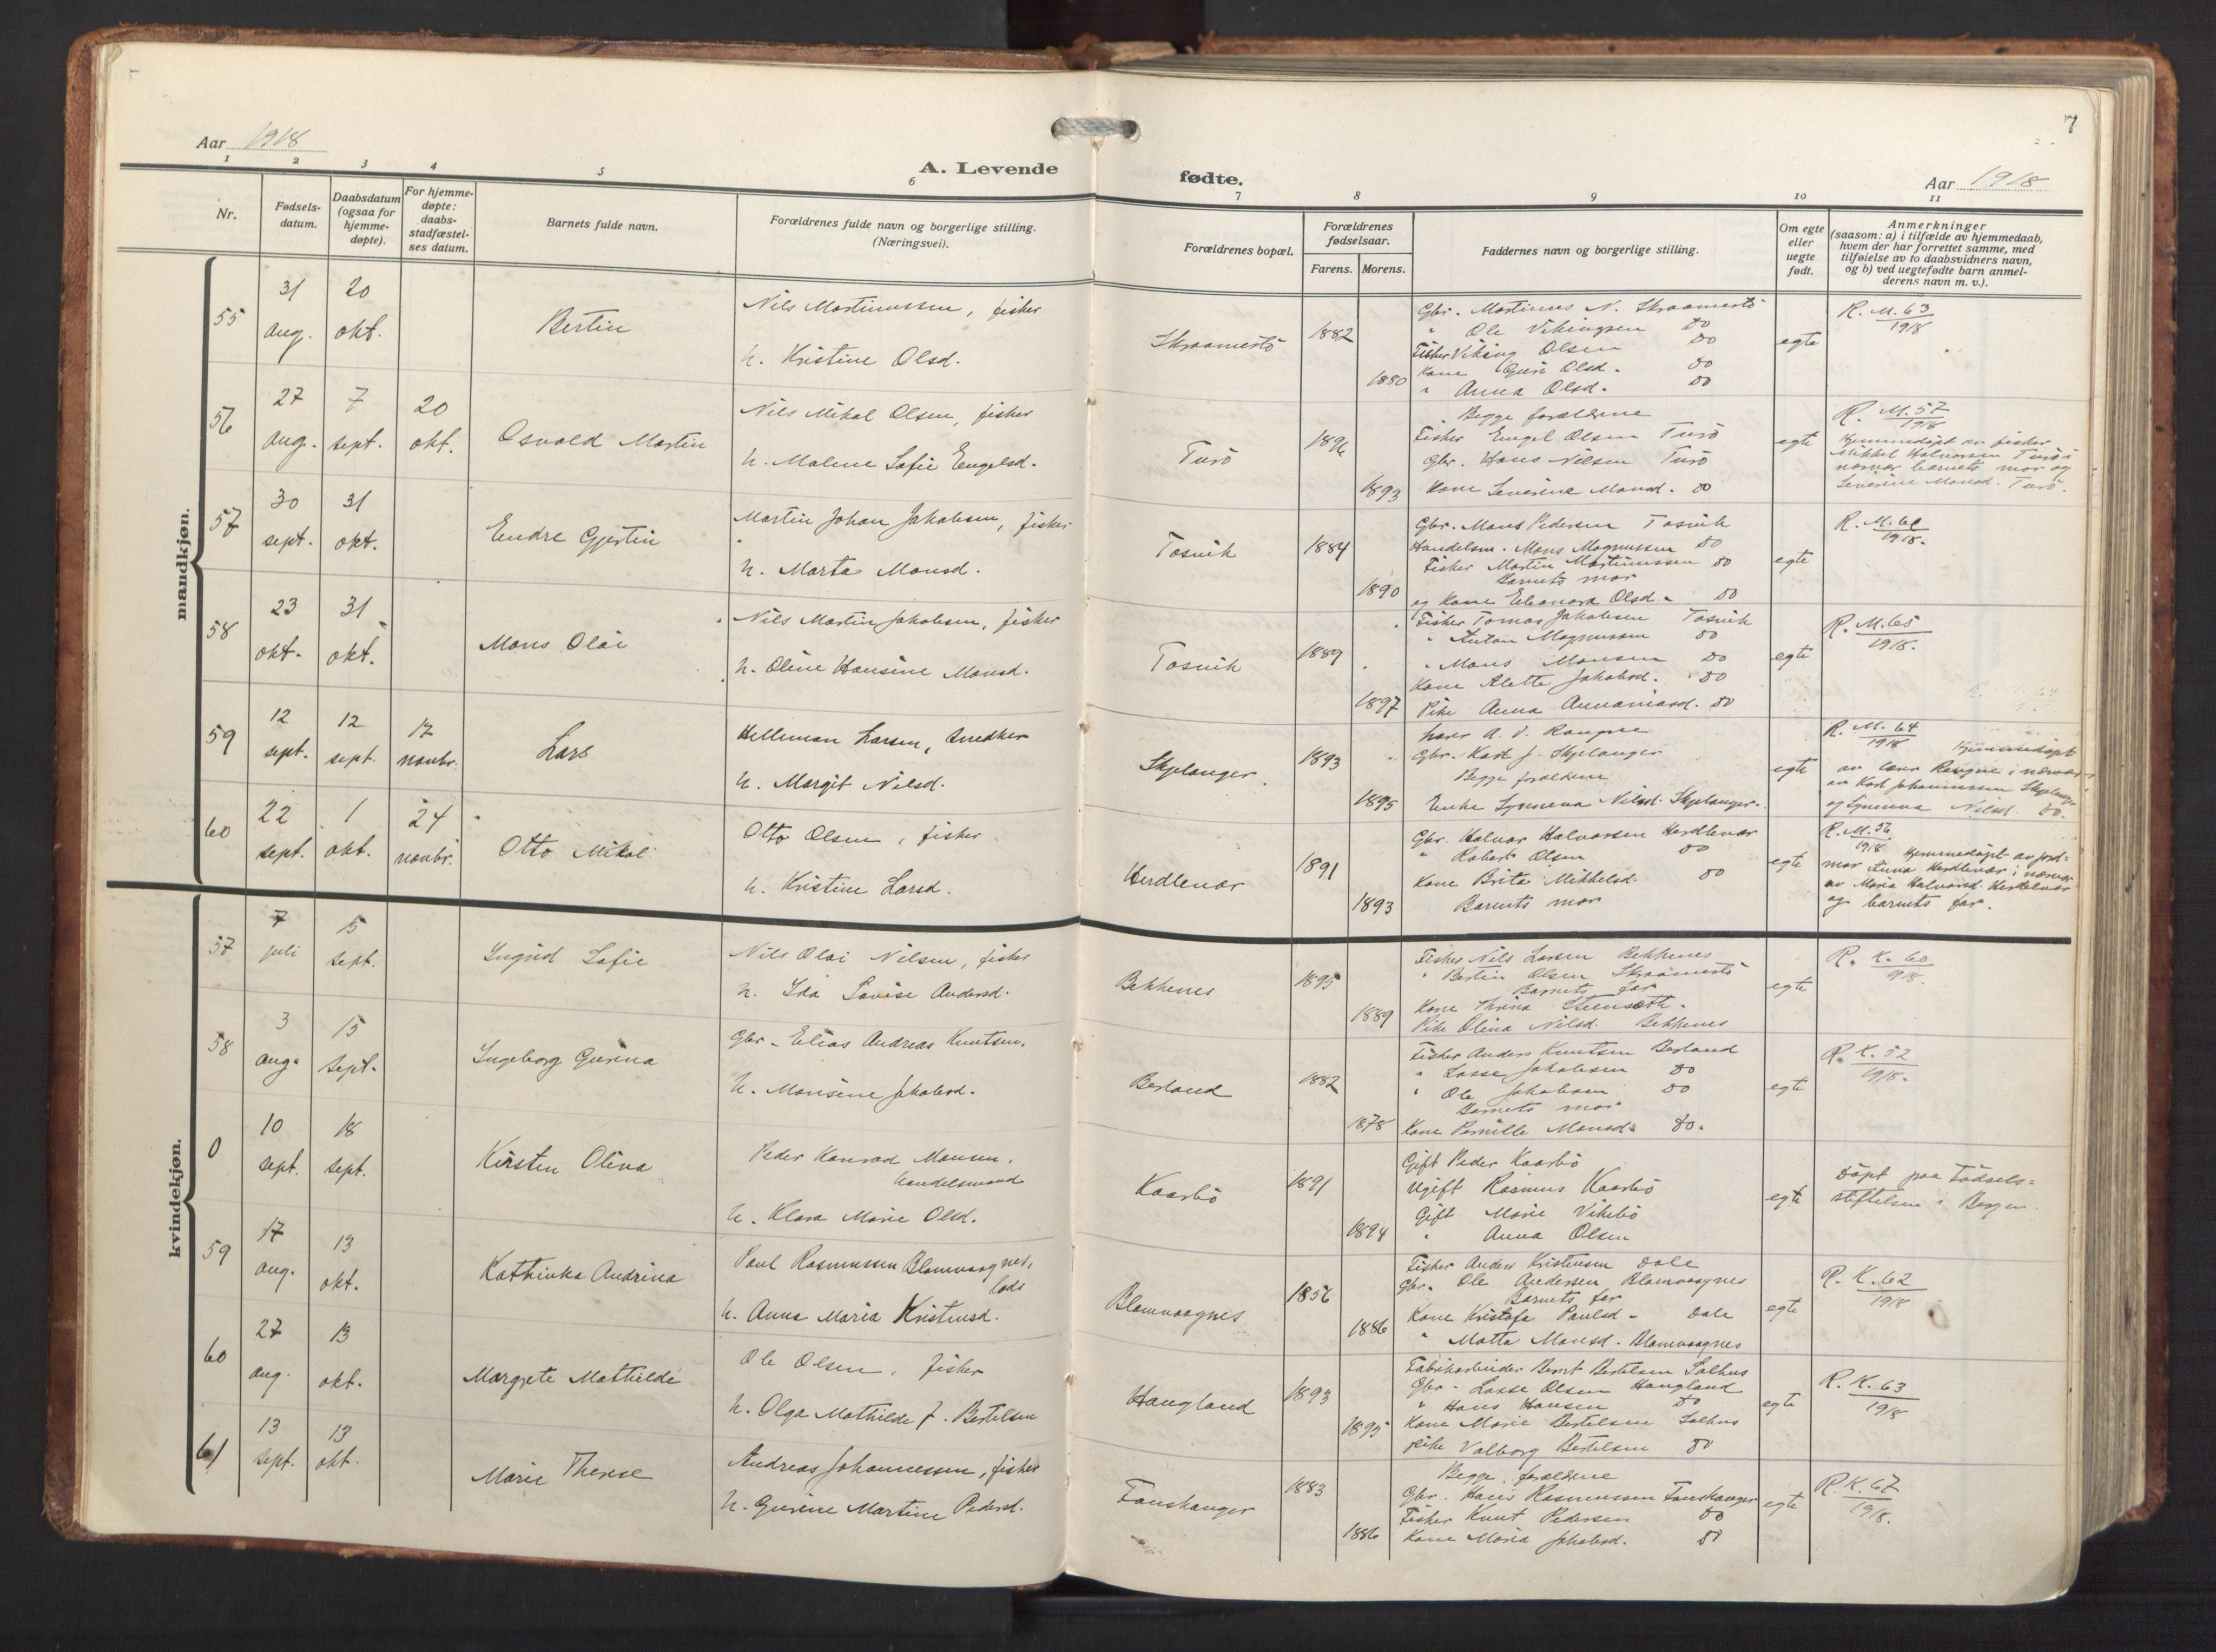 7
Aar 1918
A. Levende fødte.
Aar 1918
1 2 3 4 5 6 7 8 9 10 11
Nr.
Fødsels-
datum.
Daabsdatum
(ogsaa for
hjemme-
døpte).
For hjemme-
døpte:
daabs-
stadfæstel-
ses datum.
Barnets fulde navn.
Forældrenes fulde navn og borgerlige stilling.
(Næringsvei).
Forældrenes bopæl.
Forældrenes
fødselsaar.
Farens. Morens.
Faddernes navn og borgerlige stilling.
Om egte
eller
uegte
født.
Anmerkninger
(saasom: a) i tilfælde av hjemmedaab,
hvem der har forrettet samme, med
tilføielse av to daabsvidners navn,
og b) ved uegtefødte barn anmel-
derens navn m. v.).
mandkjøn.
55
31
aug.
20
okt.
Bertin
Nils Martinussen, fisker
h. Kristine Olsd.
Skraamestö
1882
1880
Gbr. Martinus N. Skraamestö
" Ole Vikingsen do
Fisker Viking Olsen do
Kone Guri Olsd. do
" Anna Olsd. do
egte
R. M. 63
1918
56
27
aug.
7
sept.
20
okt.
Osvald Martin
Nils Mikal Olsen, fisker
h. Malene Sofie Engelsd.
Turö
1896
1893
Begge forældrene
Fisker Engel Olsen Turö
Gbr. Hans Nilsen Turö
Kone Severine Monsd. do
egte
R. M. 57
1918
Hjemmedöpt av fisker
Mikkel Halvorsen Turö i
nærvær barnets mor og
Severine Monsd. Turö.
57
30
sept.
31
okt.
Endre Gjertin
Martin Johan Jakobsen, fisker
h. Marta Monsd.
Tosvik
1884
1890
Gbr. Mons Pedersen Tosvik
Handelsm. Mons Magnussen do
Fisker Martin Martinussen do
Barnets mor
og Kone Eleonora Olsd. do
egte
R. M. 61
1918.
58
23
okt.
31
okt.
Mons Olai
Nils Martin Jakobsen, fisker
h. Oline Hansine Monsd.
Tosvik
1889
1897
Fisker Tomas Jakobsen Tosvik
" Anton Magnussen do
" Mons Monsen do
Kone Alette Jakobsd. do
Pike Anna Annaniasd. do
egte
R. M. 65
1918.
59
12
sept.
12
sept.
17
novbr.
Lars
Helleman Larsen, snedker
h. Margit Nilsd.
Skjelanger.
1893
1895
Gbr. Karl J. Skjelanger
Begge forældrene
Enke Synneva Nilsd. Skjelanger.
egte
R. M. 64
1918 Hjemmedöpt
av lærer i nærvær
av Karl Johannessen Skjelanger
og Synneva Nilsd. do.
60
22
sept.
1
okt.
24
novbr.
Otto Mikal
Otto Olsen, fisker
h. Kristine Larsd.
Herdlevær
1891
1893
Gbr. Halvor Halvorsen Herdlevær
" Robert Olsen do
Kone Brita Mikkelsd. do
Barnets mor
egte
R. M. 56
1918 Hjemmedöpt av jord=
mor Anna Herdlevær i nærvær
av Maria Halvorsd. Herdlevær
og barnets far.
kvindekjøn.
57
7
juli
15
sept.
Ingrid Sofie
Nils Olai Nilsen, fisker
h. Ida Lovise Andersd.
Bekkenes
1895
1889
Fisker Nils Larsen Bekkenes
" Bertin Olsen Skraamestö
Barnets far
Kone Steinseth.
Pike Olina Nilsd. Bekkenes
egte
R. K. 60
1918.
58
3
aug.
15
sept.
Ingeborg Gurina
Gbr. Elias Andreas Knutsen.
h. Monsine Jakobsd.
Berland
1882
1878
Fisker Anders Knutsen Berland
" Lasse Jakobsen do
" Ole Jakobsen do
Barnets mor
Kone Pernille Monsd. do.
egte
R. K. 52
1918.
0
10
sept.
18
sept.
Kirsten Oliva
Peder Konrad Monsen,
handelsmand
h. Klara Marie Olsd.
Kaarbö
1891
1894
Gift Peder Kaarbö
Ugift Rasmus Kaarbö
Gift Marie Vikebö
" Anna Olsen
egte
Döpt paa Födsels=
stiftelsen i Bergen.
59
17
aug.
13
okt.
Kathinka Andrina
Paul Rasmussen Blomvaagnes,
lods
h. Anna Maria Kristensd.
Blomvaagnes
1856
1886
Fisker Anders Kristensen Dale
Gbr. Ole Andersen Blomvaagnes
Barnets far
Kone Kristofa Paulsd. Dale
" Matta Monsd. Blomvaagnes
egte
R. K. 62
1918
60
27
aug.
13
okt.
Margrete Mathilde
Ole Olsen, fisker
h. Olga Mathilde J. Bertelsen
Haugland
1893
1895
Fabrikarbeider Bernt Bertelsen Salhus
Gbr. Lasse Olsen Haugland
" Hans Hansen do
Kone Marie Bertelsen Salhus
Pike Valborg Bertelsen do
egte
R. K. 63
1918
61
13
sept.
13
okt.
Marie Therese
Andreas Johannessen, fisker
h. Gurine Martine Pedersd.
Fauskanger
1883
1886
Begge forældrene
Gbr. Hans Rasmussen Fauskanger
Fisker Knut Pedersen do
Kone Maria Jakobsd. do
egte
R. K. 67
1918.